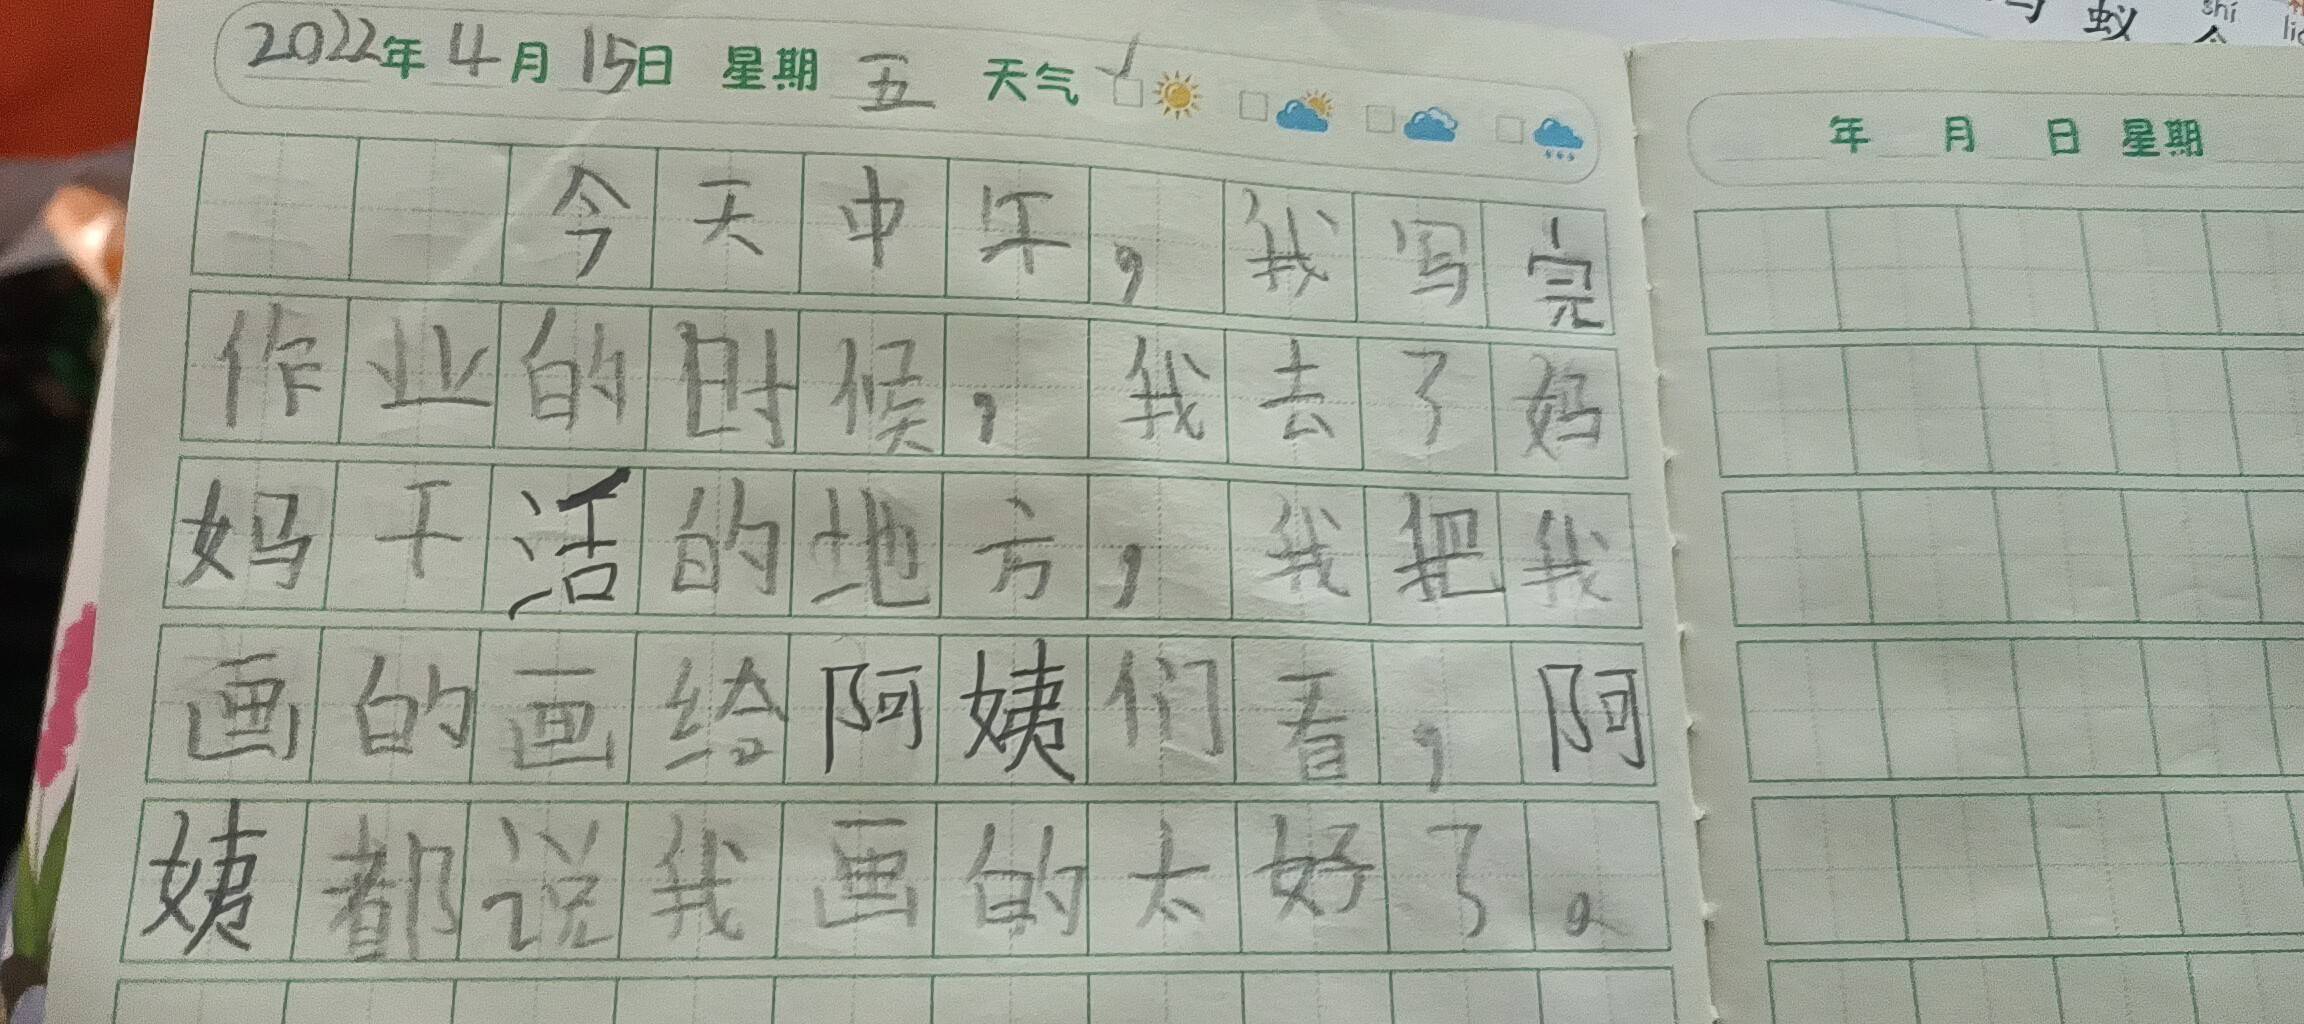 2022年4月15日 星期五 天气
今天中午，我写完
作业的时候，我去了妈
妈干活的地方，我把我
画的画给阿姨们看，阿
姨都说我画的太好了。
年 月 日 星期
蚁
shí